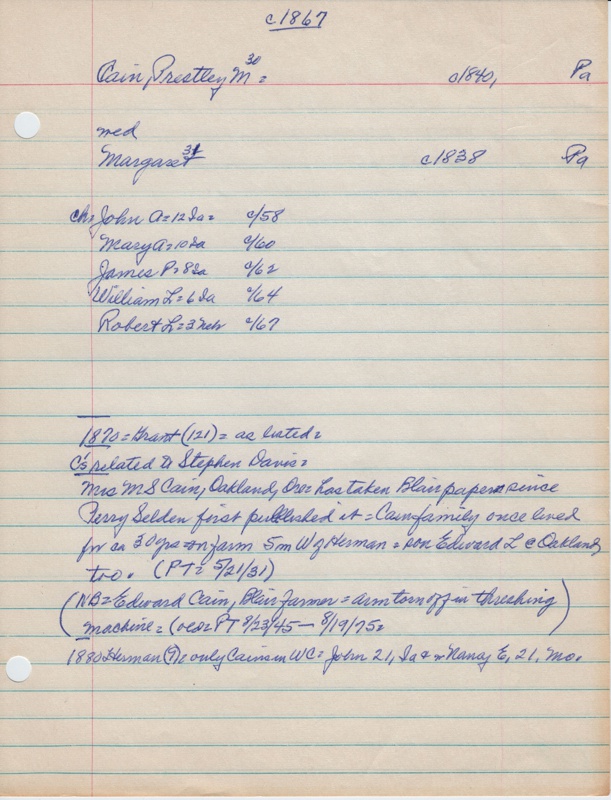 c1867
Cain, Prestley M 30 = c1840, Pa
med
Margaret 31 c1838 Pa
ch= John A = 12 Ia = c/58
Mary A = 10 Ia c/60
James P = 8 Ia c/62
William L = 6 Ia c/64
Robert L = 3 Neb c/67
1870 = Grant (121) = as listed =
C's related to Stephen Davis =
Mrs M S Cain, Oakland, Ore = has taken Blair papers since
Perry Selden first published it = Cain family once lived
for ca 30 yrs on farm 5m W of Herman = son Edward L @ Oakland
too. (PT = 5/21/31)
(NB = Edward Cain, Blair farmer = arm torn off in threshing
machine = PT 8/23/45 — 8/19/75 =)
1880 Herman (7) = only Cains in WC = John 21, Ia & Nancy E, 21, Mo.